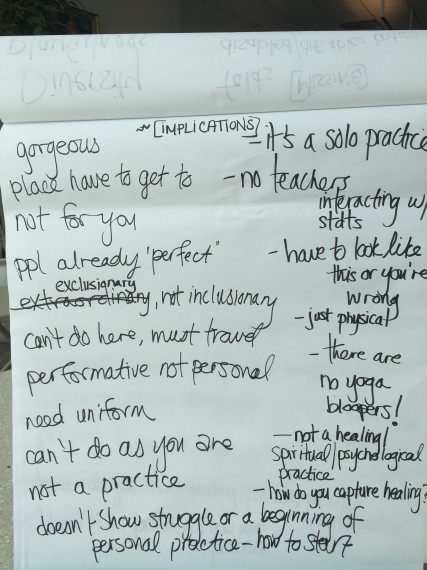 [IMPLICATIONS]
gorgeous
place have to get to
not for you
ppl already "perfect"
exclusionary
extraordinary, not inclusionary
can't do here, must travel
performative not personal
need uniform
can't do as you are
not a practice
doesn't show struggle or a beginning of
personal practice - how to start
- it's a solo practice
- no teachers
interacting w/
stdts
- have to look like
this or you're
wrong
- just physical
- there are
no yoga
bloopers!
- not a healing/
spiritual/psychological
practice
- how do you capture healing?